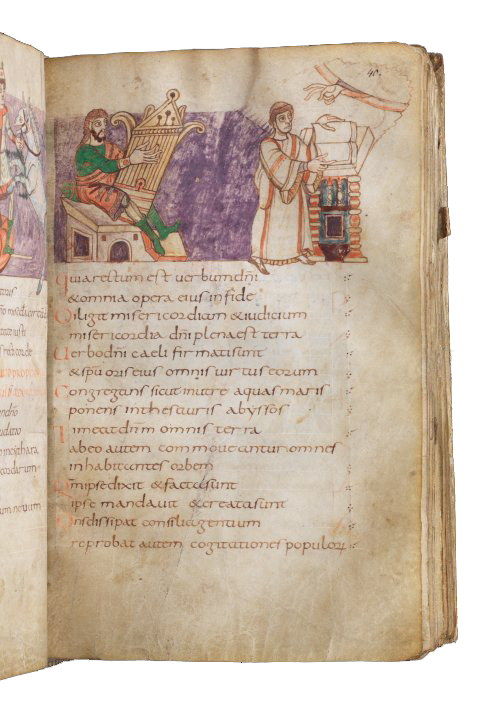 40.
Quia rectum est uerbum dñi
& omnia opera eius in fide
Diligit misericordiam & iudicium
misericordia dñi plena est terra
Uerbo dñi caeli firmati sunt
& spū oris eius omnis uirtus eorum
Congregans sicut in utre aquas maris
ponens in thesauris abyssos
Timeat dñm omnis terra
ab eo autem commoueantur omnes
inhabitantes orbem
Qm ipse dixit & facta sunt
ipse mandauit & creata sunt
Dns dissipat consilia gentium
reprobat autem cogitationes populorꝝ